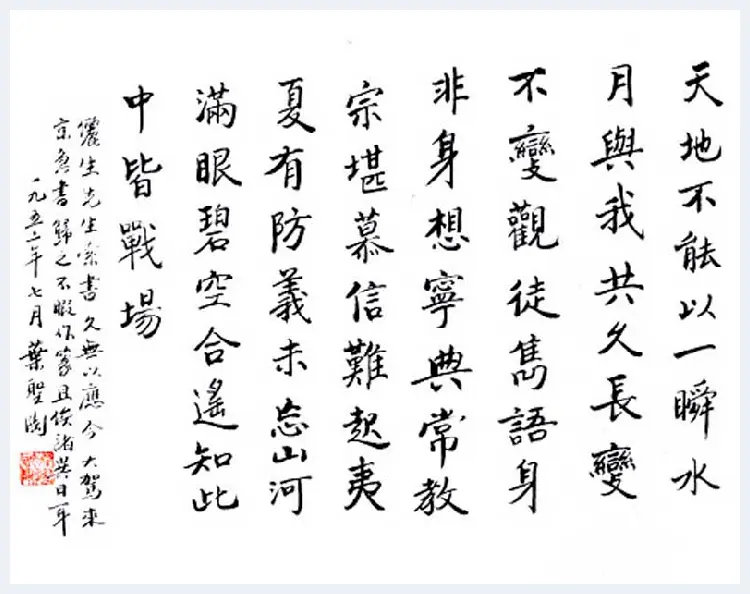 天地不能以一瞬水
月與我共久長變
不變觀徒雋語身
非身想寧典常教
宗堪慕信難起夷
夏有防義未忘山河
滿眼碧空合遙知此
中皆戰場
儷生先生索書久無以應今大駕來
京急書歸之不暇作篆且俟諸異日耳
一九五二年七月葉聖陶